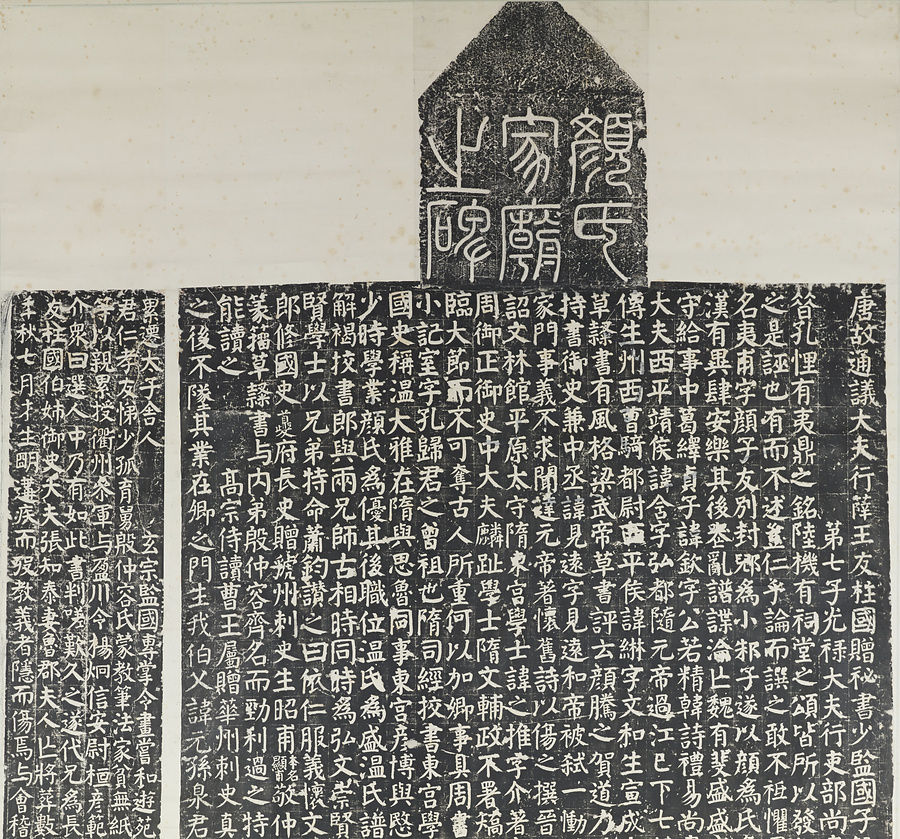 顏氏
家廟
之碑
唐故通議大夫行薛王友柱國贈秘書少監國子
第七子光祿大夫行吏部尚
昔孔悝有夷鼎之銘陸機有祠堂之頌皆所以發
之是誣也有而不述豈仁乎論而譔之敢不祖懼
名夷甫字顏子友別封郳為小邾子遂以顏為氏
漢有異肆安樂其後喪亂譜諜淪亡魏有斐盛盛
守給事中葛繹貞子諱欽字公若精韓詩禮易尚
大夫西平靖侯諱含字弘都隨元帝過江已下七
傳生州西曹騎都尉西平侯諱綝字文和生宣成
草隸書有風格梁武帝草書評云顏騰之賀道力
持書御史兼中丞諱見遠字見遠和帝被弒一慟
家門事義不求聞達元帝著懷舊詩以傷之撰晉
詔文林館平原太守隋東宮學士諱之推字介著
周御正御史中大夫麟趾學士隋文輔政不署矯
臨大節而不可奪古人所重何以加卿事具周書
小記室字孔歸君之曾祖也隋司經校書東宮學
國史稱溫大雅在隋與思魯同事東宮彥博與愍
少時學業顏氏為優其後職位溫氏為盛溫氏譜
解褐校書郎與兩兄師古相時同時為弘文崇賢
賢學士以兄弟特命蕭鈞讚之曰依仁服義懷文
郎修國史夔府長史贈虢州刺史生昭甫本名顯甫敬仲
篆籀草隸書与内弟殷仲容齊名而勁利過之特
能讀之 高宗侍讀曹王屬贈華州刺史真
之後不隊其業在卿之門生我伯父諱元孫泉君
累遷太子舍人 玄宗監國專掌令畫嘗和遊苑
君仁孝友悌少孤育舅殷仲容氏蒙教筆法家貧無紙
等以親累授衢州參軍与盈川令楊炯信安尉桓彥範
介衆曰選人中乃有如此書判嗟歎久之遂代兄為長
友柱國伯姊御史大夫張知泰妻魯郡夫人亡將葬數
年秋七月才生明遘疾而歿教義者隱而傷焉与會稽